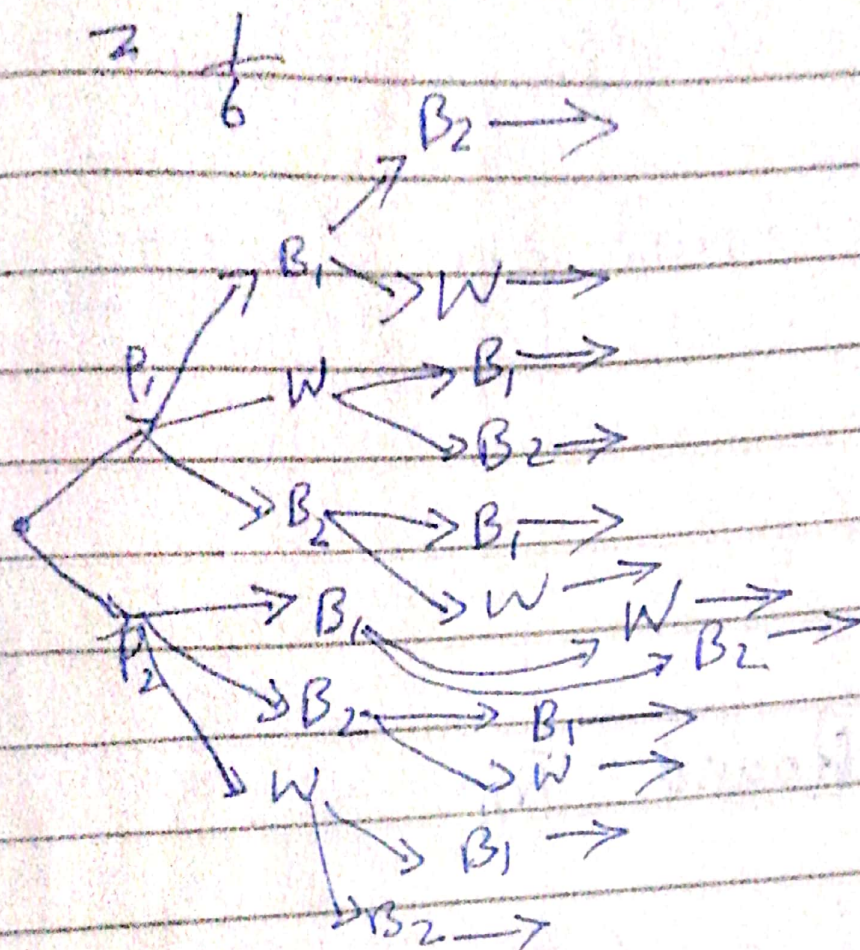 = 1/6
B₂ →
B₁ → W →
P₁
W → B₁ →
B₂ →
B₂ → B₁ →
W →
B₁ → W →
B₂ →
P₂
B₂ → B₁ →
W →
W → B₁ →
B₂ →